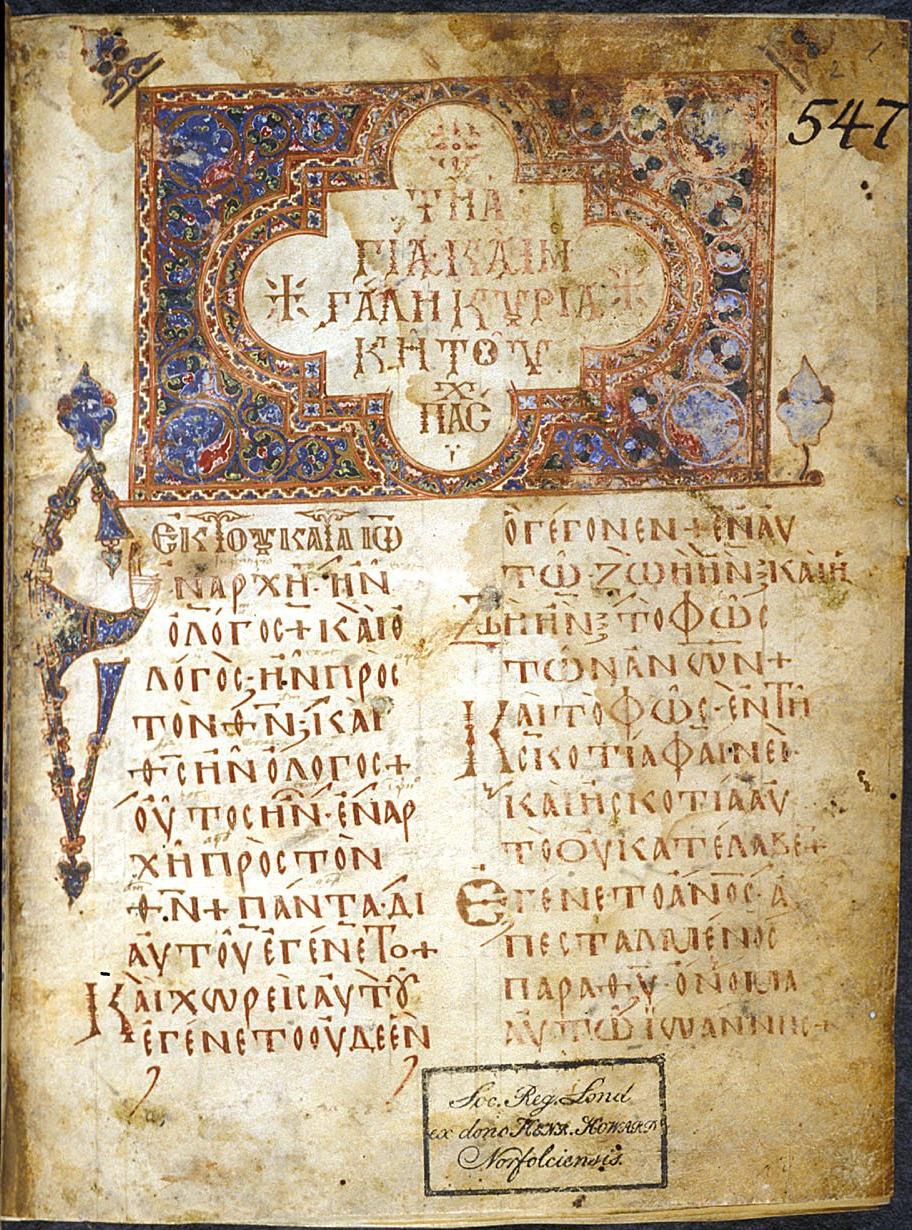 547
ΤΗ Α
ΓΙΑ· ΚΑΙ Μ
ΓΑΛΗ ΚΥΡΙΑ
ΚΗ ΤΟΥ
ΠΑϹ
ΕΚ ΤΟΥ ΚΑΤΑ ΙΩ
ΝΑΡΧΗ· ΗΝ
ὉΛΌΓΟϹ+ ΚΑῚ Ο
ΛΌΓΟϹ· ΗΝ ΠΡΟϹ
ΤΟΝ Θ̅Ν̅· ΚΑΙ
Θ̅Ϲ̅ ΗΝ Ο ΛΟΓΟϹ+
ΟΥΤΟϹ ΗΝ· ΕΝ ΑΡ
ΧΗ ΠΡΟϹ ΤΟΝ
Θ̅Ν̅+ ΠΑΝΤΑ· ΔΙ
ΑΥΤΟΥ ΕΓΕΝΕΤΟ+
ΚΑΙ ΧΩΡΕΙϹ ΑΥΤΟΥ
ΕΓΕΝΕΤΟ ΟΥΔΕ ΕΝ
Ὁ ΓΕΓΟΝΕΝ+ ΕΝ ΑΥ
ΤΩ· ΖΩΗ ΗΝ· ΚΑΙ Η
ΖΩΗ ΗΝ· ΤΟ ΦΩϹ
ΤΩΝ Α̅Ν̅Ω̅Ν̅+
ΚΑΙ ΤΟ ΦΩϹ· ΕΝ ΤΗ
ϹΚΟΤΙΑ ΦΑΙΝΕΙ·
ΚΑΙ Η ϹΚΟΤΙΑ ΑΥ
ΤΟ ΟΥ ΚΑΤΕΛΑΒΕ+
ΕΓΕΝΕΤΟ Α̅Ν̅Ο̅Ϲ̅· Α
ΠΕϹΤΑΛΜΕΝΟϹ
ΠΑΡΑ Θ̅Υ̅· ΟΝΟΜΑ
ΑΥΤΩ ΙΩΑΝΝΗϹ+
Soc. Reg. Lond
ex dono HENR. HOWARD
Norfolciensis.